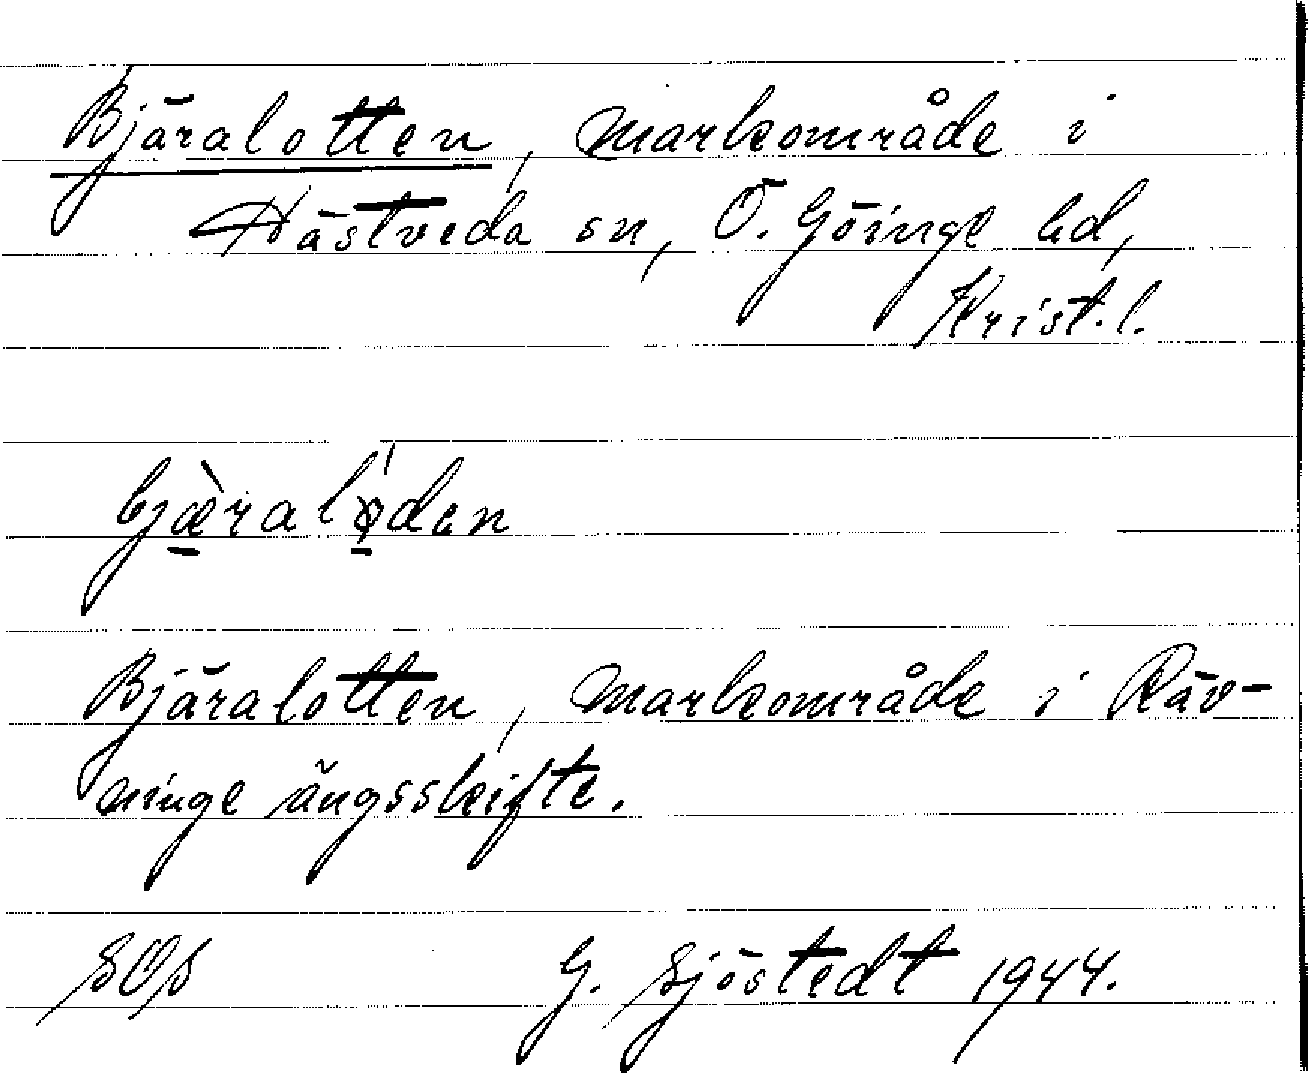 Bjäralotten, markområde i
Hästveda sn, Ö. Göinge hd,
Krist. l.
bjæ̀ralo̩den
Bjäralotten, markområde i Räv-
ninge ängsskifte.
SOS G. Sjöstedt 1944.